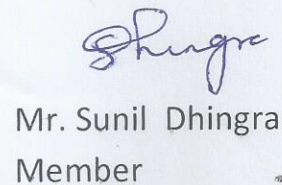 Dhingra
Mr. Sunil Dhingra
Member